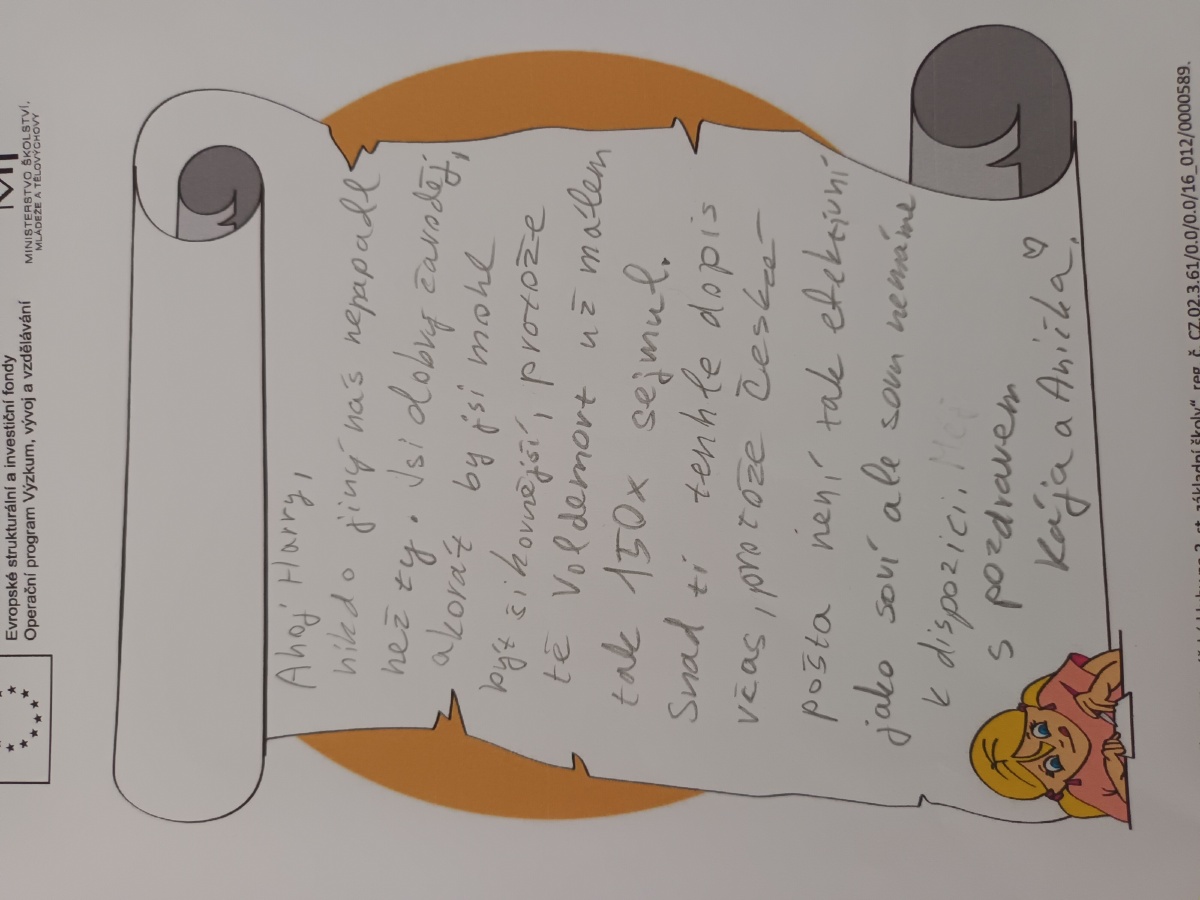 Evropské strukturální a investiční fondy
Operační program Výzkum, vývoj a vzdělávání
MINISTERSTVO ŠKOLSTVÍ,
MLÁDEŽE A TĚLOVÝCHOVY
Ahoj Harry,
nikdo jiný nás nepapadl
než ty. Jsi dobrý čaroděj,
akorát by jsi mohl
být šikovnější, protože
tě Voldemort už málem
tak 150x sejmul.
Snad ti tenhle dopis
včas, protože České
pošta není tak efektivní
jako soví ale sovu nemáme
k dispozici.
S pozdravem
Kája a Anička ♡.
základní školy“, reg. č. CZ.02.3.61/0.0/0.0/16_012/0000589.